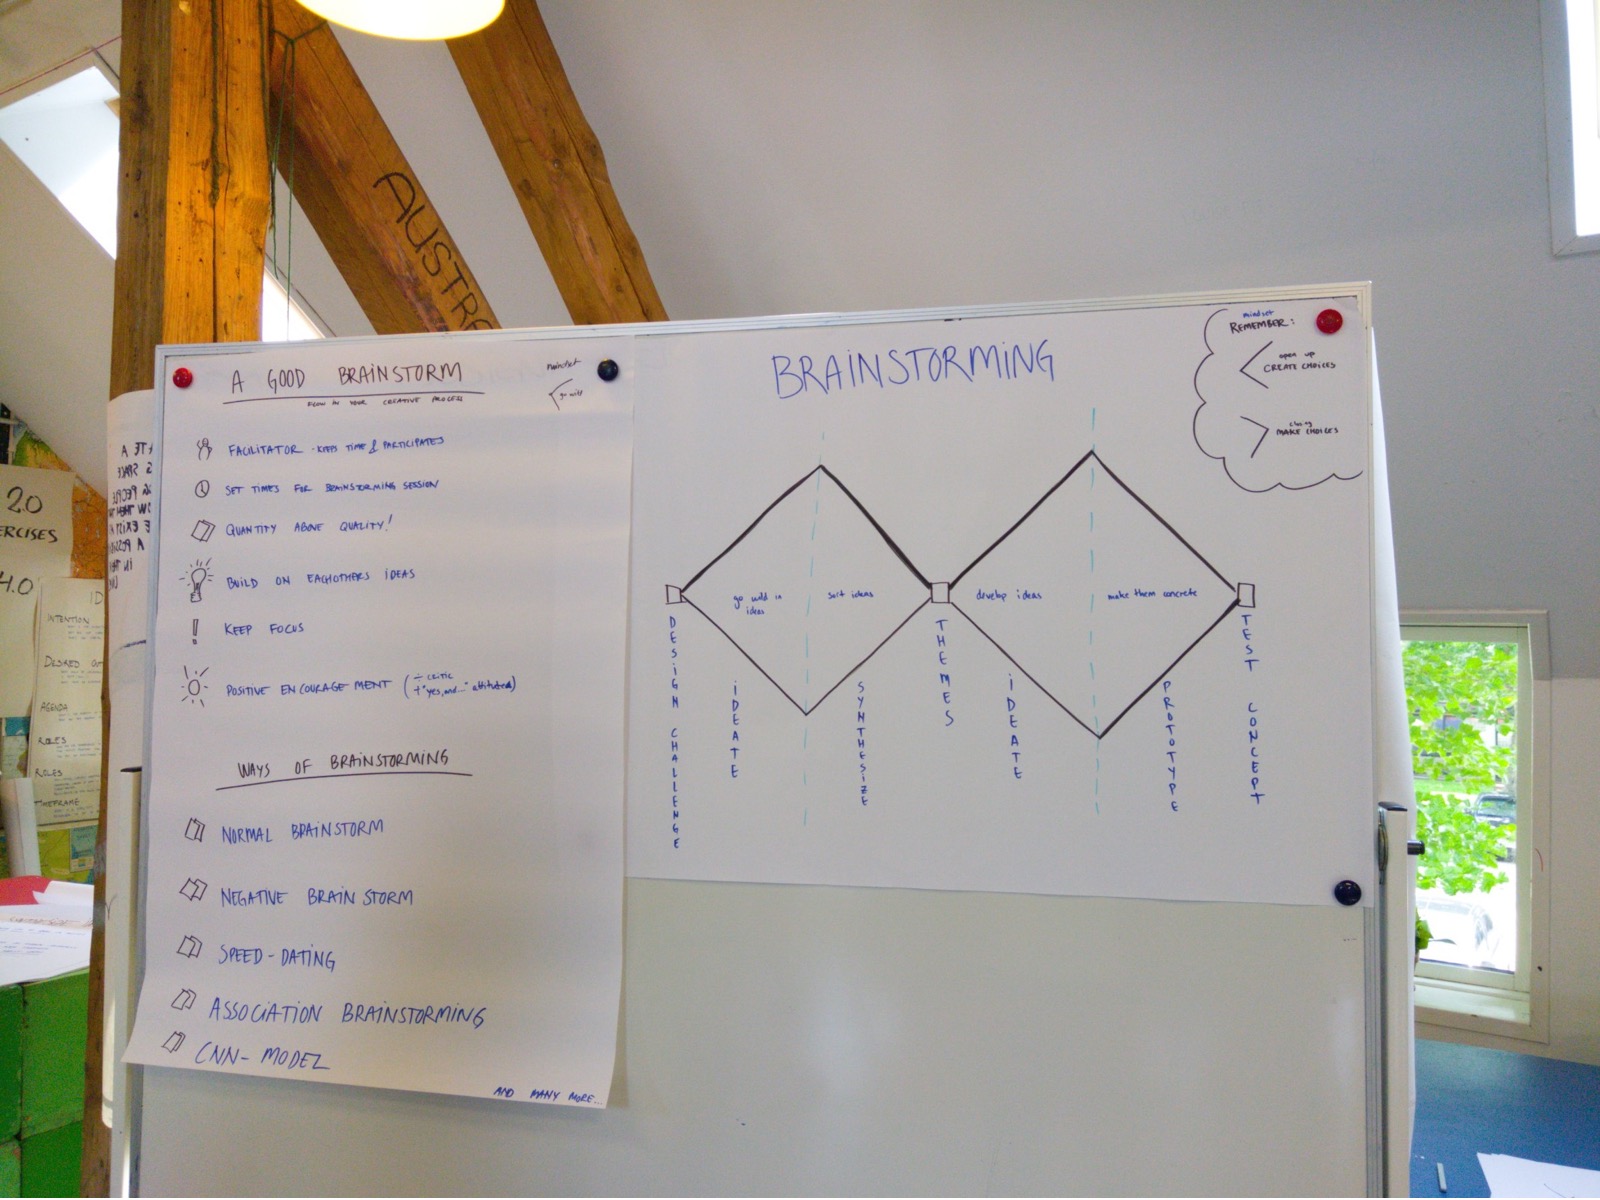 AUSTR
A GOOD BRAINSTORM
FLOW IN YOUR CREATIVE PROCESS
mindset
go wild
FACILITATOR - KEEPS TIME & PARTICIPATES
SET TIMES FOR BRAINSTORMING SESSION
QUANTITY ABOVE QUALITY!
BUILD ON EACHOTHERS IDEAS
KEEP FOCUS
POSITIVE ENCOURAGEMENT (÷ CRITIC
+ "yes, and..." attitude)
WAYS OF BRAINSTORMING
NORMAL BRAINSTORM
NEGATIVE BRAINSTORM
SPEED-DATING
ASSOCIATION BRAINSTORMING
CNN-MODEL
AND MANY MORE...
BRAINSTORMING
mindset
REMEMBER:
open up
CREATE CHOICES
closing
MAKE CHOICES
go wild in
ideas
sort ideas
develop ideas
make them concrete
DESIGN CHALLENGE
IDEATE
SYNTHESIZE
THEMES
IDEATE
PROTOTYPE
TEST CONCEPT
2.0
ERCISES
4.0
ID
INTENTION
DESIRED
AGENDA
ROLES
ROLES
TIMEFRAME